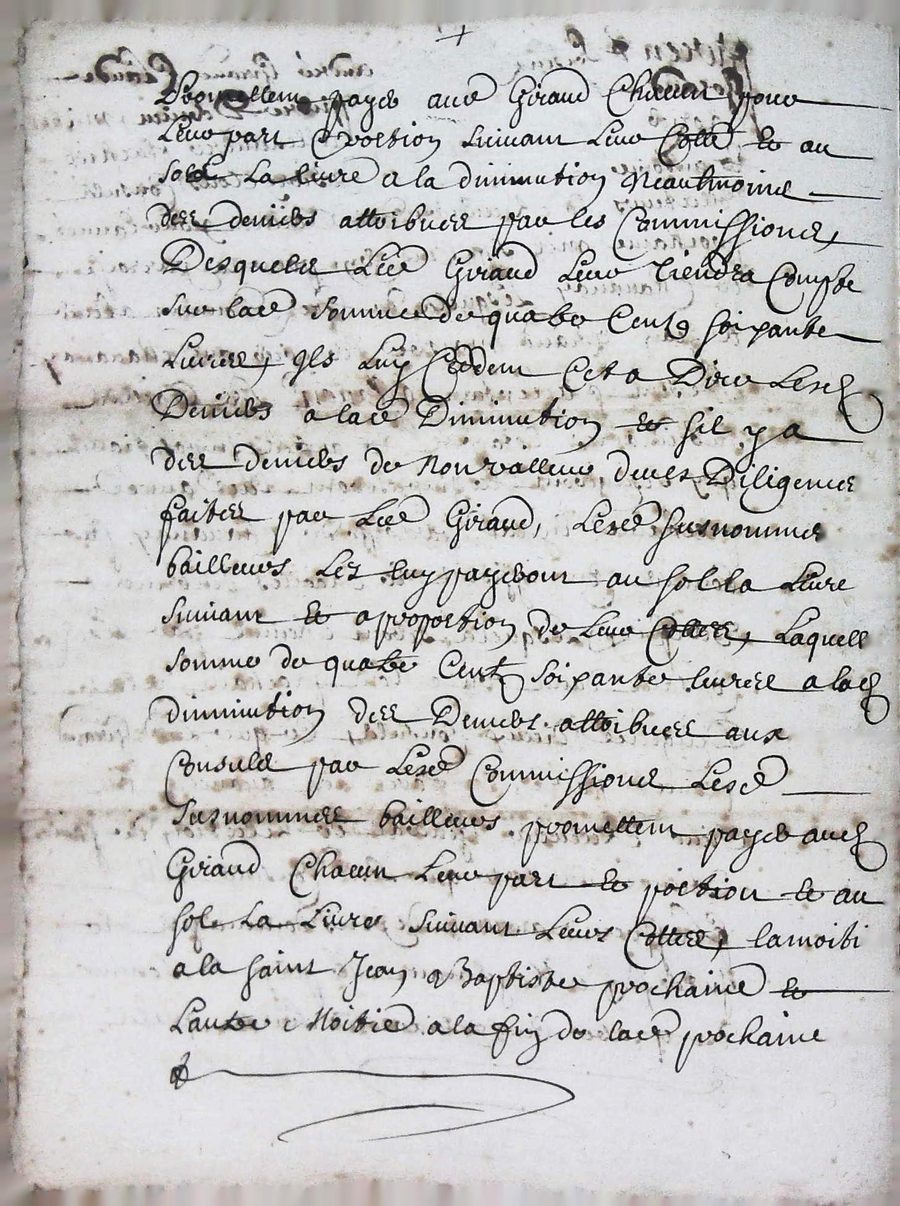 +
Promettent payer aud Giraud Chacun pour
Leur part & portion suivant Leur Cotte et au
sold La livre a la diminution Neantmoins
des deniers attribues par les Commissions,
Desquels Led Giraud Leur Tiendra Compte
sur lad somme de quatre Cents soixante
Livres, Ils Luy Ceddent Cet a Dire Lesd
Deniers a lad Diminution et sil y a
des deniers de Nonvalleur deues Diligences
faites par Led Giraud, Lesd susnommes
bailleurs Les luy payeront au sol la Livre
suivant et a proportion de Leur Cottes, Laquell
somme de quatre Cents soixante livres a lad
diminution des Deniers attribues aux
Consuls par Lesd Commissions Lesd
susnommes bailleurs promettent payer aud
Giraud Chacun Leur part et portion et au
sol La Livre suivant Leurs Cottes, la moiti
a la saint Jean Baptiste prochaine et
Lautre Moitie a la fin de lad prochaine